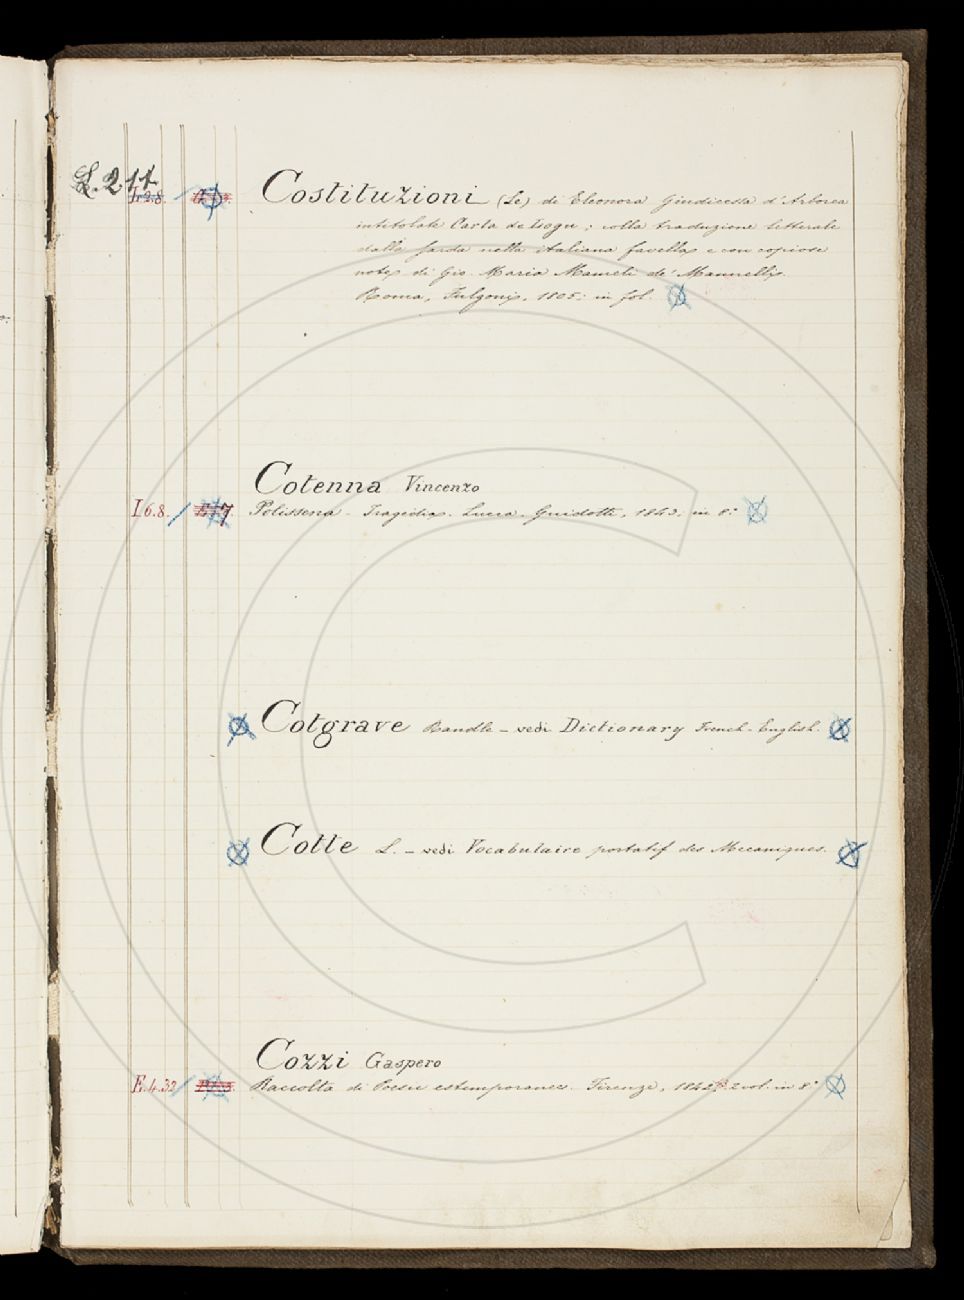 L. 211
I.2.8 Costituzioni (Le) di Eleonora Giudicessa d'Arborea
intitolate Carta de Logu; colla traduzione letterale
dalla sarda nella italiana favella e con copiose
note di Gio. Maria Mameli de' Mannelli.
Roma, Fulgoni, 1805; in fol.
Cotenna Vincenzo
I.6.8. Polissena - Tragedia. Lucca. Guidotti, 1843; in 8.°
Cotgrave Randle - vedi Dictionary French-English.
Cotte L. - vedi Vocabulaire portatif des Mecaniques.
Cozzi Gaspero
E.4.32 Raccolta di Poesie estemporanee. Firenze, 1842; 2 vol. in 8.°